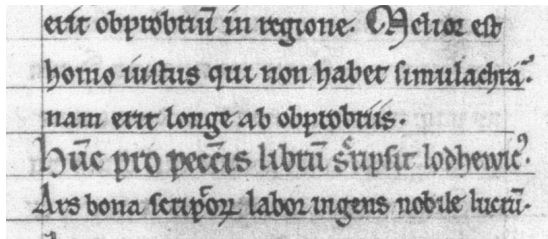 erit obprobriū in regione. Melior est
homo iustus qui non habet simulachra.
nam erit longe ab obprobriis.
Hūc pro pecc̄is librū sc̄ripsit lodhewicꝰ.
Ars bona scriptoꝝ labor ingens nobile lucrū.